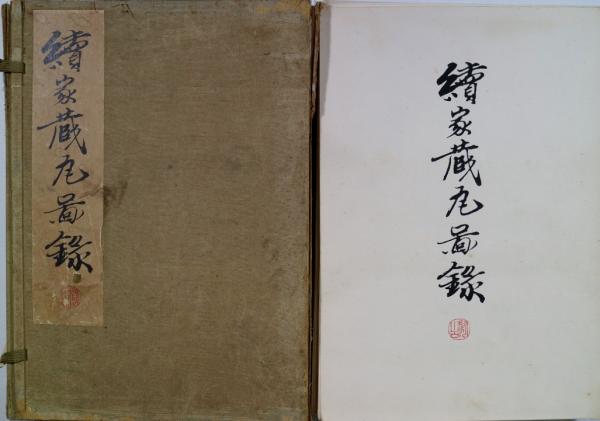 續家蔵瓦圖録
續家蔵瓦圖録